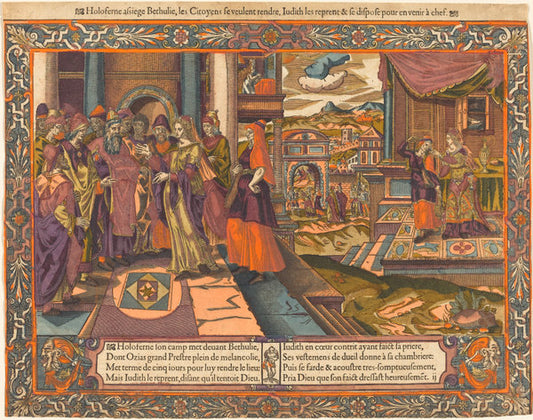 Holoferne asiege Bethulie, les Citoyens se veulent rendre, Iudith les reprent & se dispose pour en venir à chef.
Holoferne son camp met deuant Bethulie,
Dont Ozias grand Prestre plein de melancolie,
Met terme de cinq iours pour luy rendre le lieu:
Mais Iudith le reprent, disant qu'il tentoit Dieu.
Iudith en cœur contrit ayant faict sa priere,
Ses vestemens de dueil donne à sa chambriere:
Puis se farde & acoustre tres-somptueusement,
Pria Dieu que son faict dressast heureusemēt. ij